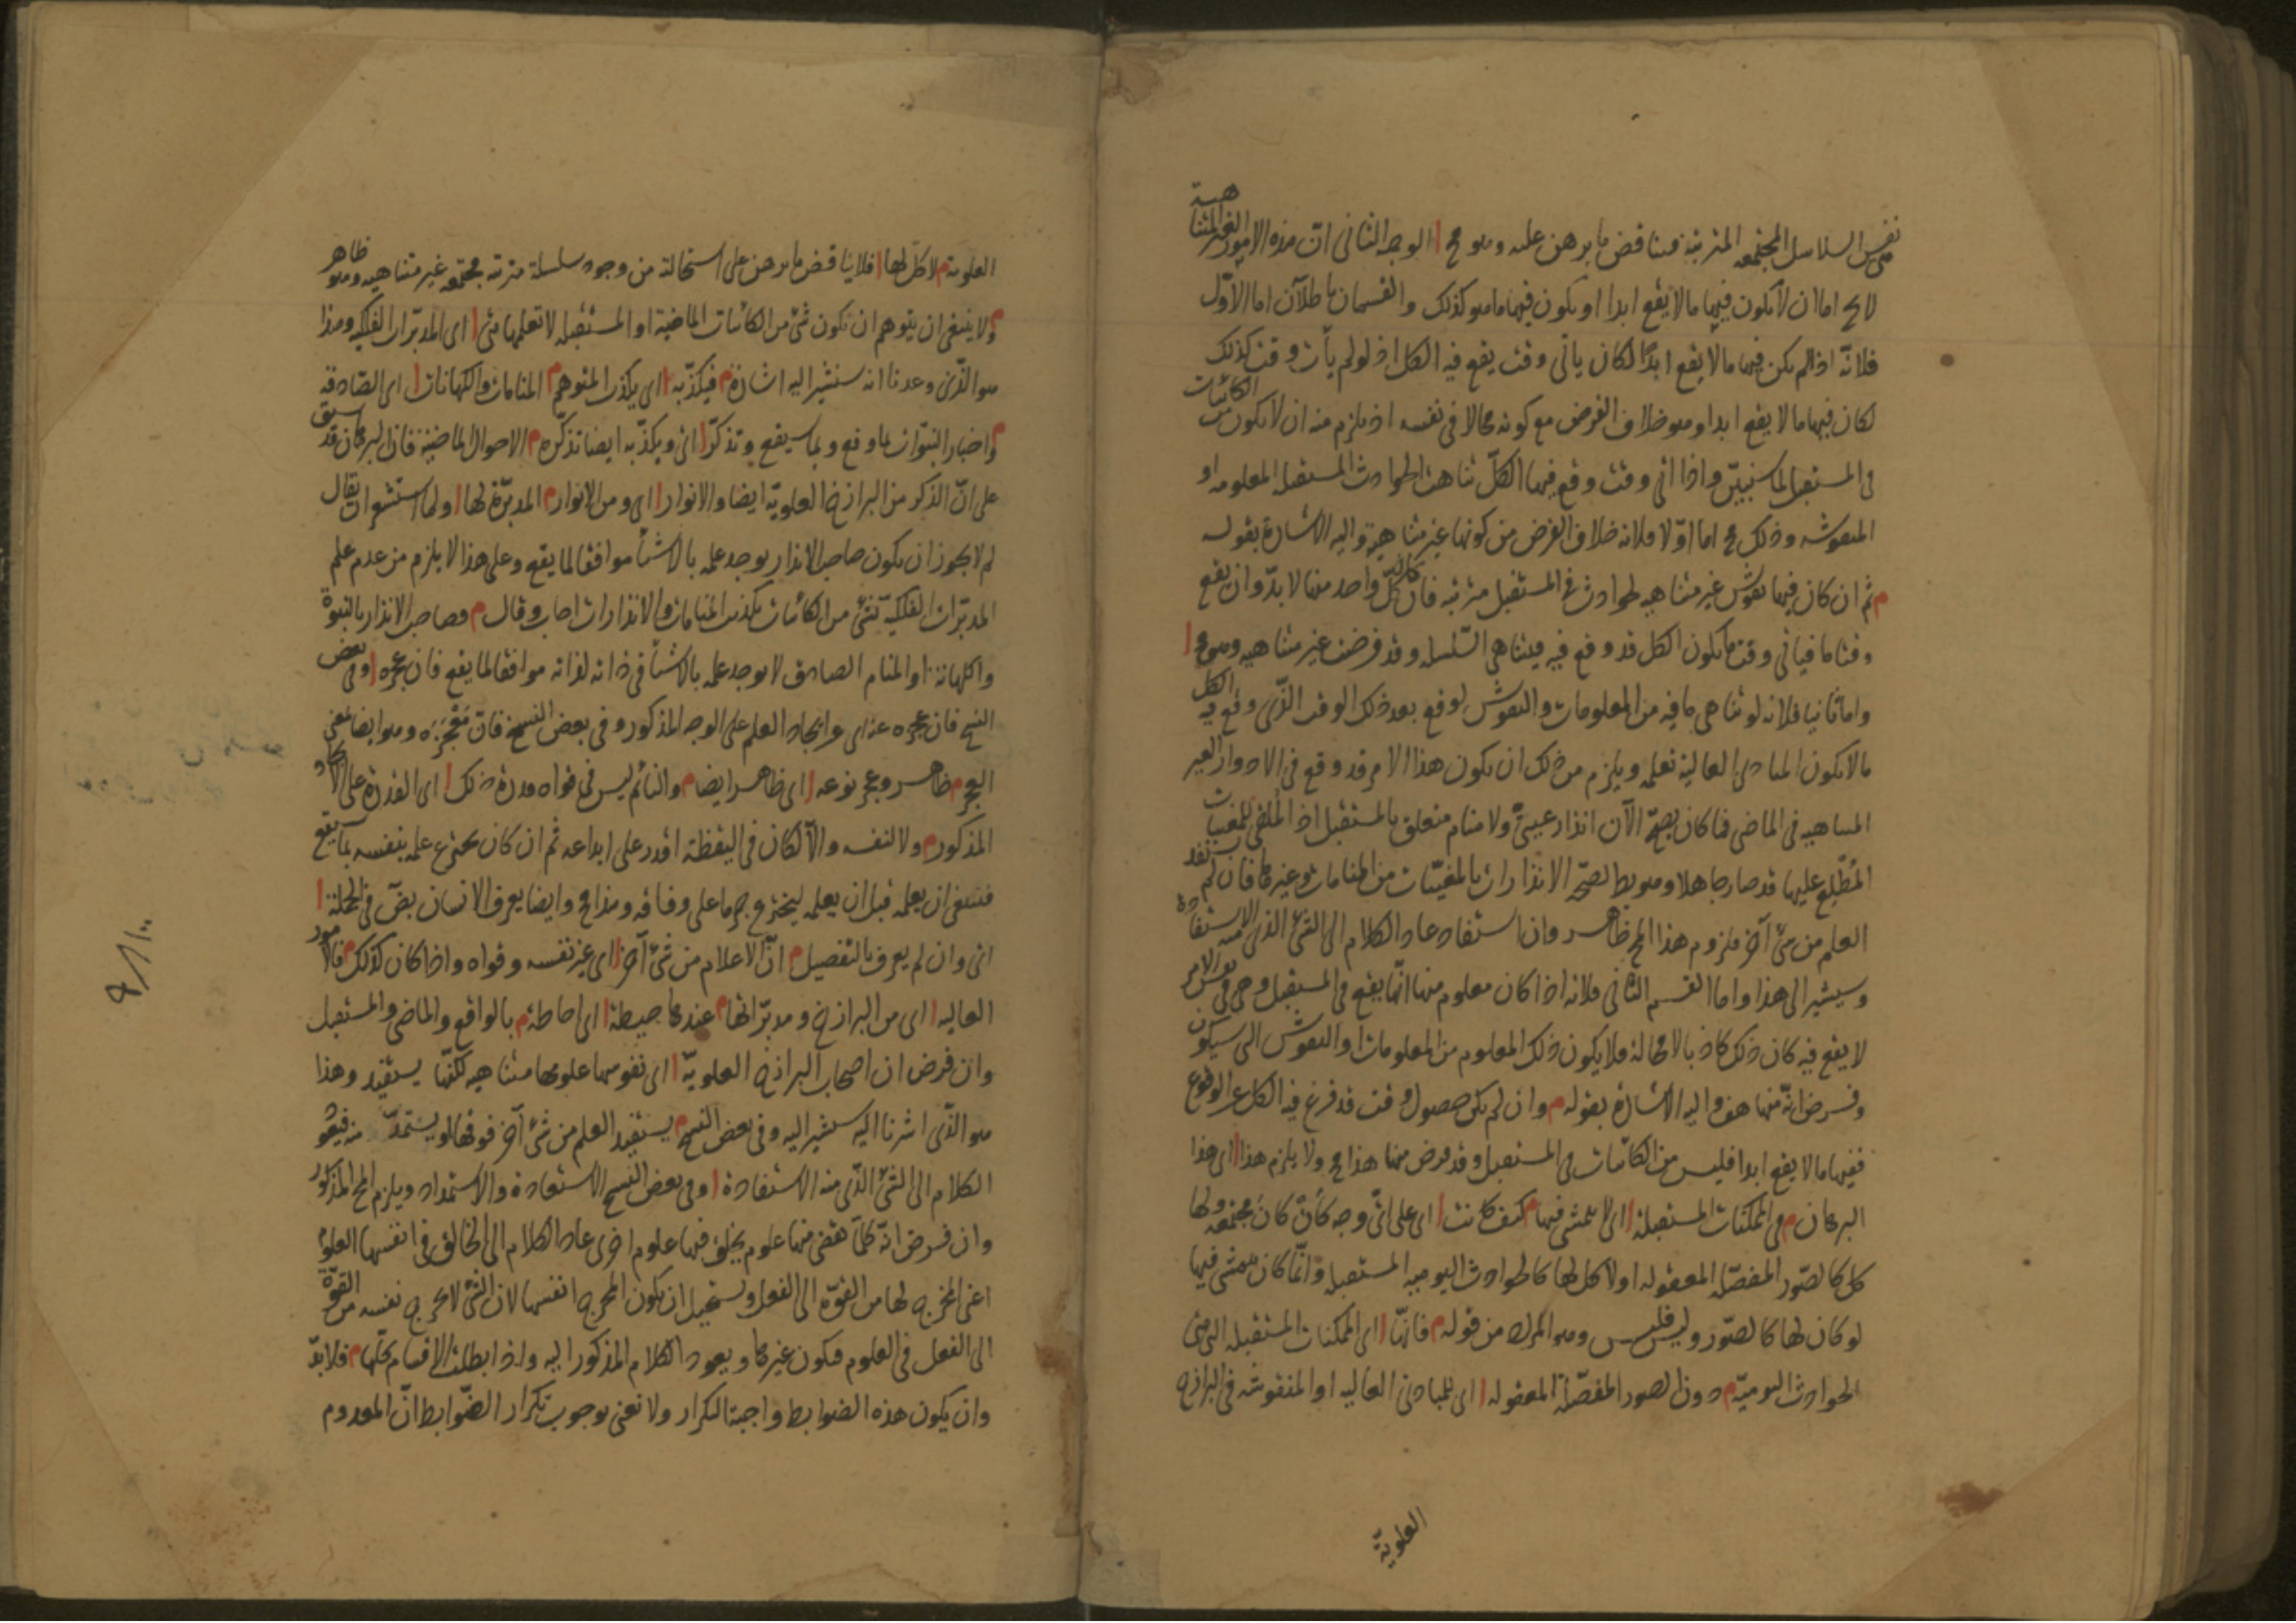 نفس السلاسل المجتمعه المترتبة فينا قض ما برهن عليه وهو مح االوجه الثانى ان هذه الامور الغير المتنا
هية
لا يخ اما ان لا يكون فيها ما لا يقع ابدا او يكون فيها ما هو كذلك والقسمان باطلان اما الاوّل
فلانّه اذا لم يكن فيها ما لا يقع ابدًا لكان يأتى وقت يقع فيه الكل اذ لو لم يأت وقت كذلك
لكان فيها ما لا يقع ابدا وهو خلاف الفرض مع كونه محالا فى نفسه اذ يلزم منه ان لا يكون من الكائنات
فى المستقبل لما سنبيّن واذا اتى وقت وقع فيها الكلّ تناهت الحوادث المستقبله المعلومه او
المنقوشه وذلك مح اما اوّلا فلانه خلاف الفرض من كونها غير متناهية واليه الاشارة بقوله
م ثم ان كان فيها نقوش غير متناهيه لحوادث فى المستقبل مترتبه فان كان كلّ واحد منها لا بدّ وان يقع
وقتا ما فيأتى وقت ما يكون الكل قد وقع فيه فيتناهى السّلسله وقد فرضت غير متناهيه وهو مح ا
واما ثانيا فلانه لو تناهى ما فيه من المعلومات والنقوش لوقع بعد ذلك الوقت الذّى وقع فيه الكل
ما لا يكون المبادى العالية تعلمه ويلزم من ذلك ان يكون هذا الامر قد وقع فى الادوار الغير
المتناهيه فى الماضى فما كان يصحّ الآن انذار غيبىّ ولا منام متعلق بالمستقبل اذ الملقى للمغيبات
المُطّلع عليها قد صار جاهلا وهو بط لصحّة الانذارات بالمغيّبات من المنامات وغيرها فان لم يستفد
العلم من شئ آخر فلزوم هذا المح ظاهر وان استفاد عاد الكلام الى الشئ الذى منه الاستفادة
وسيشير الى هذا واما القسم الثانى فلانه اذا كان معلوم منها انّها يقع فى المستقبل وهى فى نفس الامر
لا يقع فيه كان ذلك كاذبا لا محالة فلا يكون ذلك المعلوم من المعلومات او النقوش التى سيكون
وفرض انّه منها هف واليه الاشارة بقوله م وان لم يكن حصول وقت قد فرغ فيه الكل عن الوقوع
ففيها ما لا يقع ابدا فليس من الكائنات فى المستقبل وقد فرض منها هذا مح ولا يلزم هذا ا اى هذا
البرهان م فى الممكنات المستقبلة ا اى لا يتمشى فيها م كيف كانت ا اى على اىّ وجه كان كان مجتمعه ولها
كل كالصّور المفصّله المعقوله اولا كل لها كالحوادث اليوميه المستقبله وانّما كان يتمشى فيها
لو كان لها كالصّور وليس فليس وهو المراد من قوله م فانّها ا اى الممكنات المستقبله التى هى
الحوادث اليوميّه م دون الصور المفصّلة المعقوله ا اى للمبادى العاليه او المنقوشه فى البرازخ
العلويّة
العلوية م لا كلّ لها ا فلا يناقض ما برهن على استحالة من وجود سلسلة مترتبه مجتمعه غير متناهيه وهو ظاهر
م ولا ينبغى ان يتوهم ان يكون شئ من الكائنات الماضية او المستقبله لا تعلمها شئ ا اى المدبّرات الفلكيه وهذا
هو الذّى وعدنا انه سنشير اليه اشارة م فيكذّبه ا اى يكذب المتوهم م المنامات والكهانات ا اى الصّادقه
م واخبار النبّوات بما وقع وبما سيقع وتذكّر ا اى ويكذّبه ايضا تذكّره م الاحوال الماضية فان البرهان قد سبق
على انّ الذكر من البرازخ العلويّة ايضا والانوار ا اى ومن الانوار م المدبّرة لها ا ولما استشعر ان يقال
لم لا يجوز ان يكون صاحب الانذار يوجد علمه بالاشيأ موافقا لما يقع وعلى هذا لا يلزم من عدم علم
المدبّرات الفلكيّة بشئ من الكائنات يكذب المنامات والانذارات اجاب وقال م وصاحب الانذار بالنبوة
والكهانة او المنام الصادق لا يوجد علمه بالاشيأ فى ذاته لذاته موافقا لما يقع فان عجزه ا وفى بعض
النسخ فان عجزه عنه اى عن ايجاد العلم على الوجه المذكور وفى بعض النسخ فان مَعْجِزَه وهو ايضا بمعنى
العجز م ظاهر وعجز نوعه ا اى ظاهر ايضا م والنائم ليس فى قواه قدرة ذلك ا اى القدرة على الايجاد
المذكور م ولا لنفسه والّا لكان فى اليقظة اقدر على ابداعه ثم ان كان يخترع علمه بنفسه بما يقع
فينبغى ان يعلمه قبل ان يعلمه ليخترع جزما على وفاقه وهذا مح وايضا يعرف الانسان بضّ فى الجملة ا
اى وان لم يعرف بالتفصيل م انّ الاعلام من شئ آخر ا اى غير نفسه وقواه واذا كان كذلك م فالامور
العاليه ا اى من البرازخ ومدبّراتها م عندها حيطة ا اى احاطة م بالواقع والماضى والمستقبل
وان فرض ان اصحاب البرازخ العلويّة ا اى نفوسها علومها متناهيه لكنّها يستفيد وهذا
هو الذّى اشرنا اليه سنشير اليه وفى بعض النسخ م يستفيد العلم من شئ آخر فوقها او يستمدّ منه فيعود
الكلام الى الشئ الذّى منه الاستفادة ا وفى بعض النسخ الاستعادة والاستمداد ويلزم المح المذكور
وان فرض انّه كلّما ينقضى منها علوم يخلق فيها علوم اخرى عاد الكلام الى الخالق فى انفسها العلوم
اعنى المخرج لها من القوّة الى الفعل ويستحيل ان يكون المخرج انفسها لان الشئ لا يخرج نفسه من القوّة
الى الفعل فى العلوم فيكون غيرها ويعود الكلام المذكور اليه واذا بطلت الاقسام كلّها م فلا بدّ
وان يكون هذه الضوابط واجبة التكرار ولا نعنى بوجوب تكرار الضّوابط انّ المعدوم